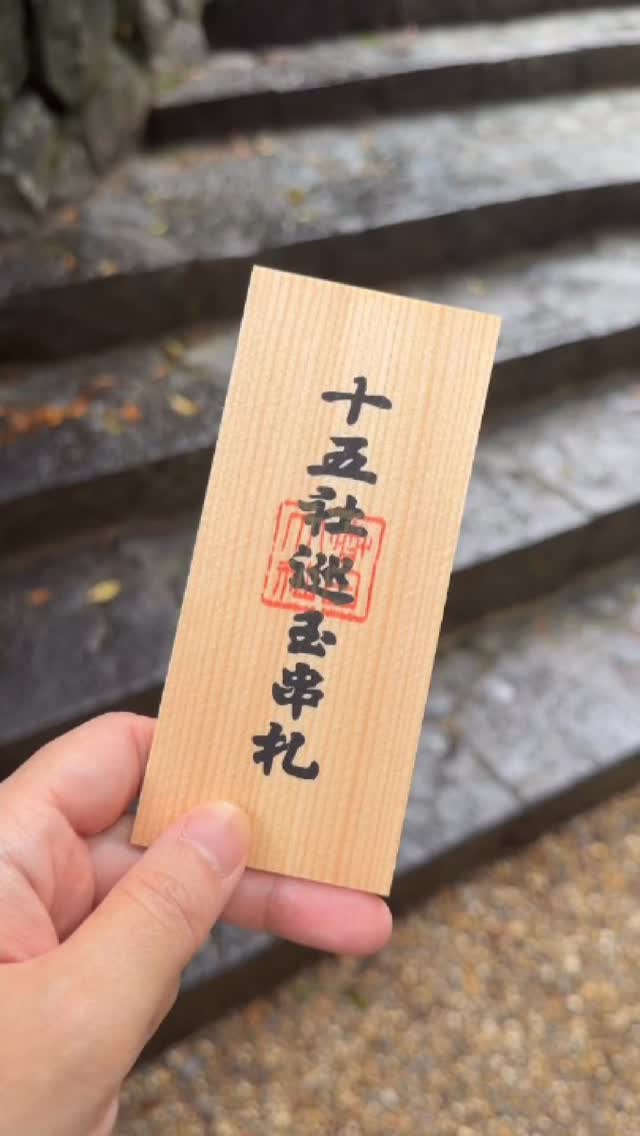 十五社巡玉串札